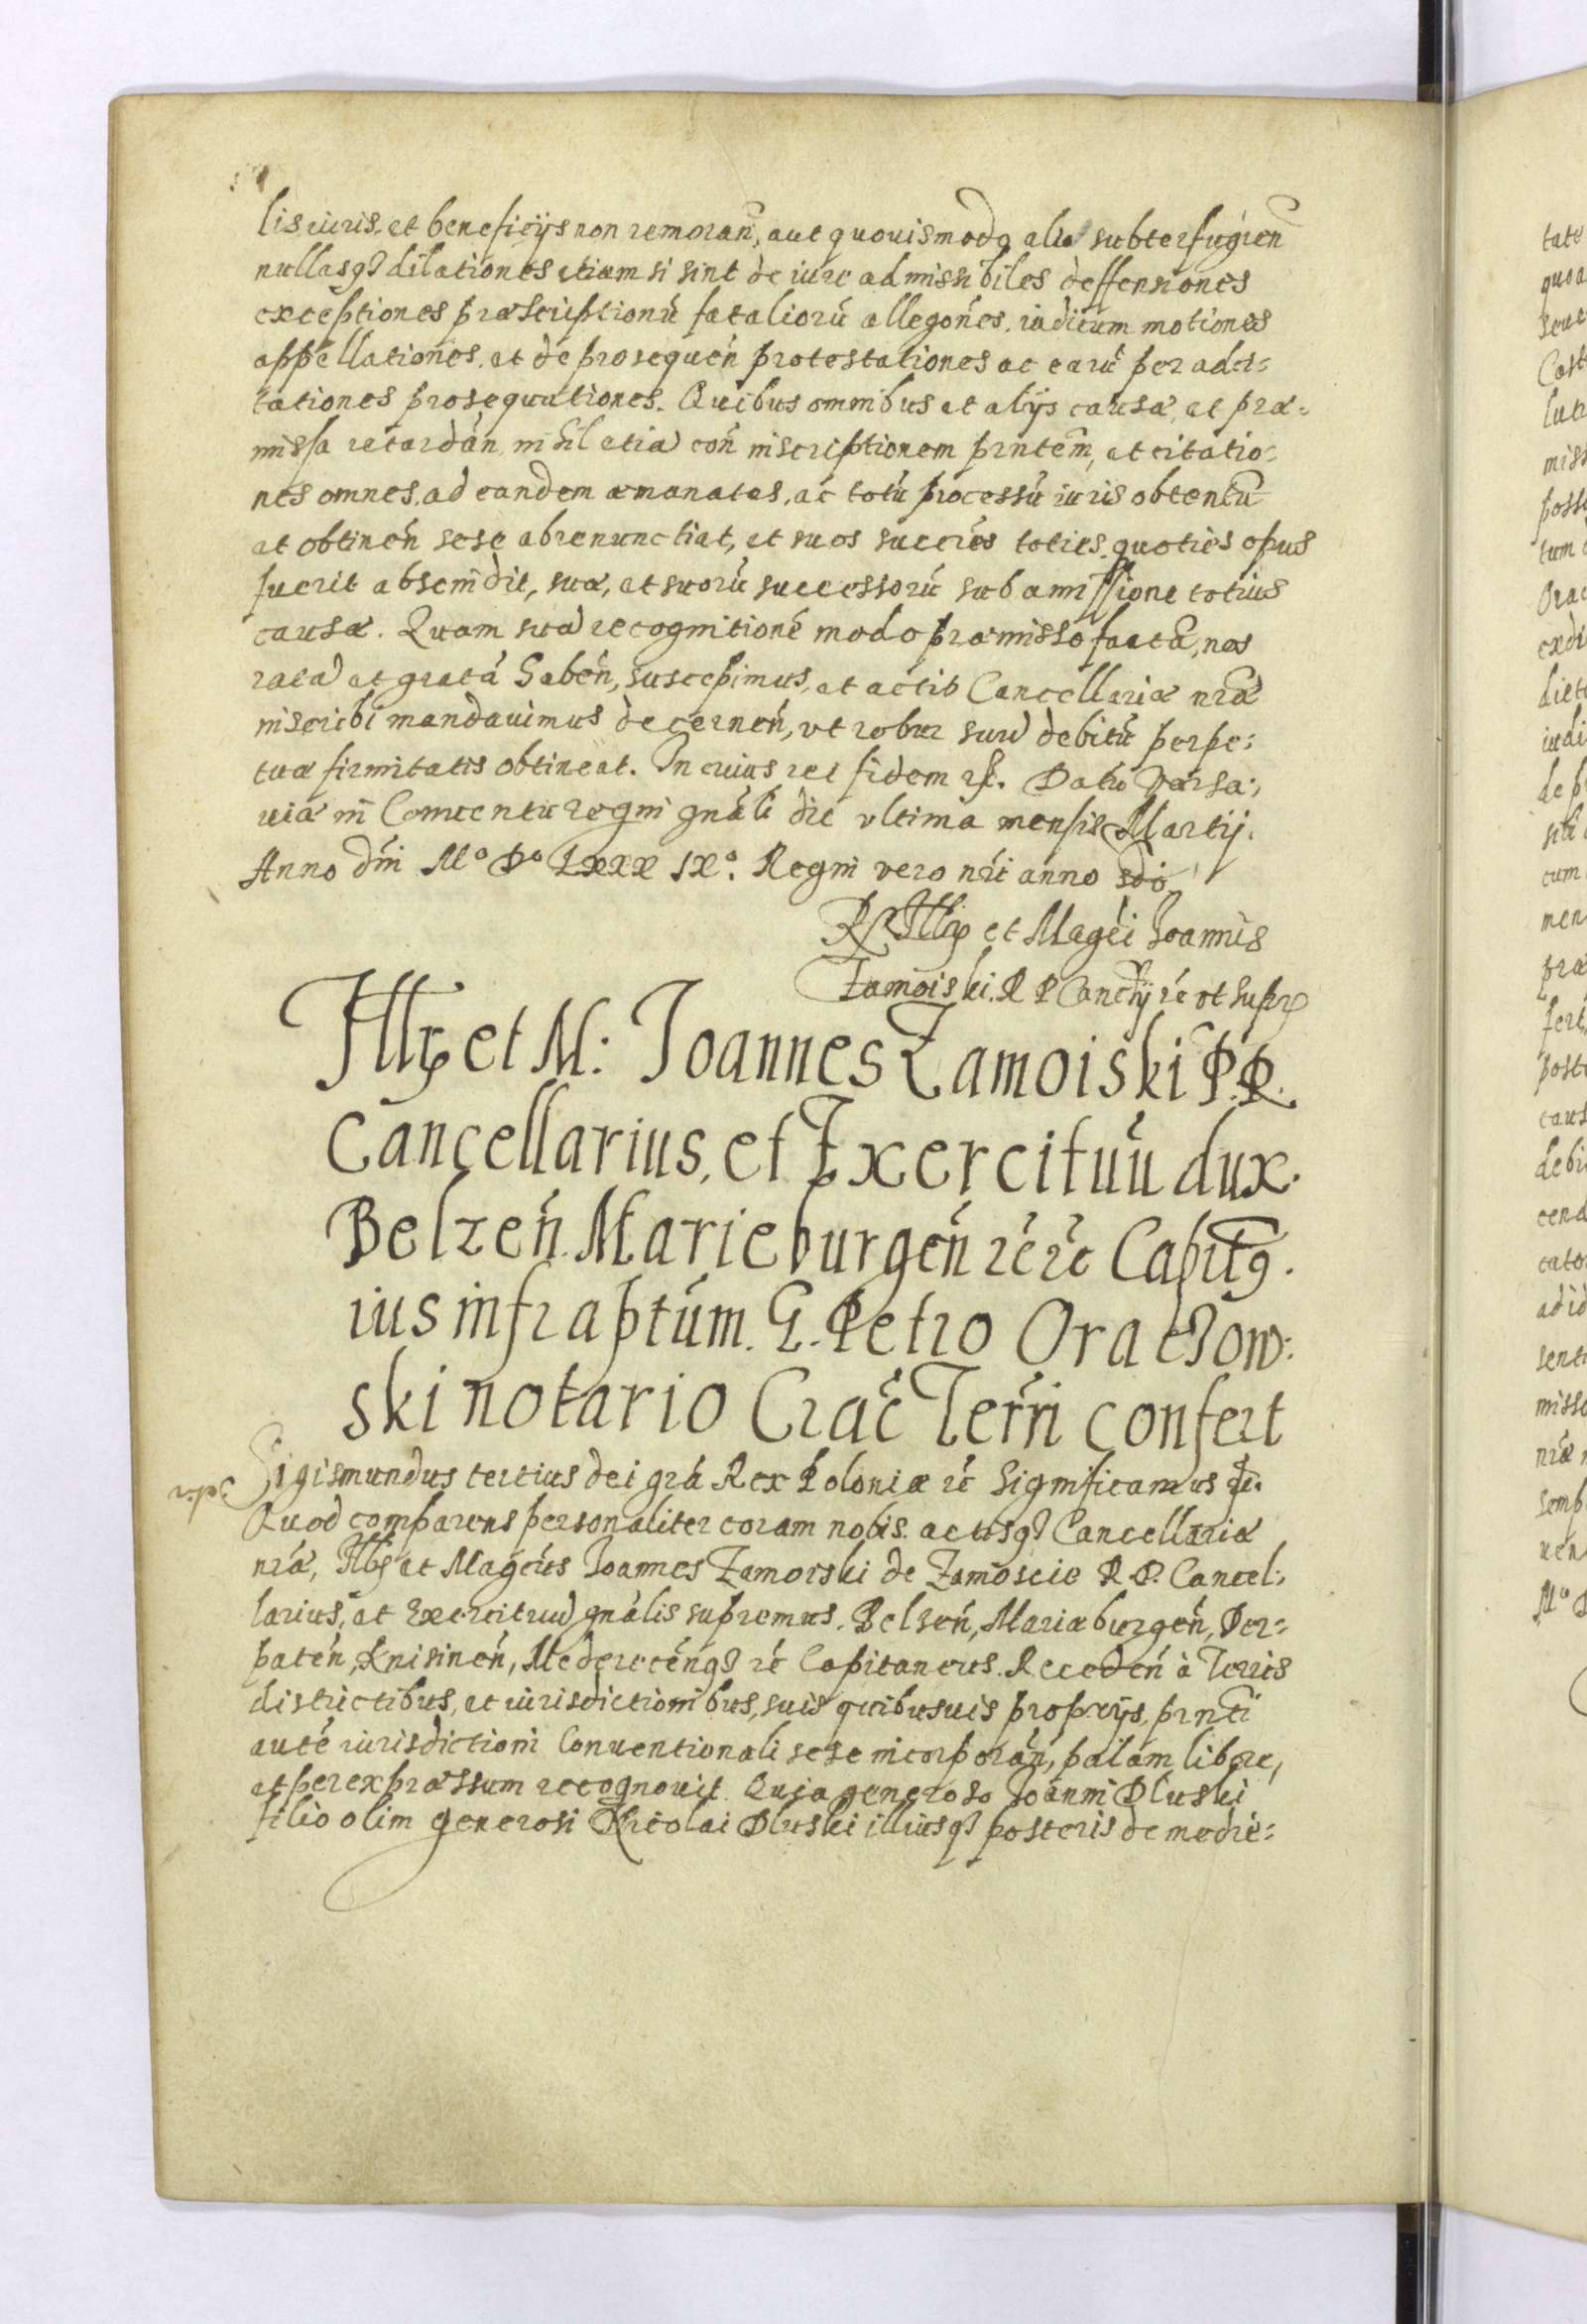 lis iuris, et beneficijs non remoran̄, aut quouismodo alio subterfugien̄
nullasq3 dilationes etiam si sint de iure admissibiles deffensiones
exceptiones præscriptionū fataliorū allegōnes, iudicum motiones
appellationes, et de prosequēn protestationes ac earū per adci-
tationes prosequutiones. Quibus omnibus et alijs causæ, et præ-
missa retardān nihil etiā con̄ inscriptionem prntem, et citatio-
nes omnes, ad eandem emanatas, ac totū processū iuris obtentū
et obtinēn sese abrenunctiat, et suos succrēs toties, quoties opus
fuerit abscindit, suæ, et suorū successorū sub amissione totius
causæ. Quam suā recognitionē modo præmisso factā, nos
ratā et gratā habēn, suscepimus, et actis Cancellariæ nræ
inscribi mandauimus decernēn, vt robur suū debitū perpe-
tuæ firmitatis obtineat. In cuius rei fidem rc. Datū Varsa-
uiæ in Conuentu regni gnāli die vltima mensis Martij.
Anno dni Mo Do Lxxx IXo. Regni vero nri anno sdo
R Illr et Magci Joannis
Zamoiski. R P Cancrij rc vt supr
Illr et M: Joannes Zamoiski P. R.
Cancellarius, et Exercituū dux.
Belzēn. Marieburgēn rc rc Capitg.
ius infraptūm. G. Petro Oraczow-
ski notario Crac Terrī confert
Sigismundus tertius dei grā Rex Poloniæ rc Significamus rc.
Quod comparens personaliter coram nobis, actisq3 Cancellariæ
nræ, Illr et Magcus Joannes Zamoiski de Zamoscie R. P. Cancel-
larius, et Exercituū gnālis supremus. Belzēn, Mariæburgēn, Der-
patēn, Knisinēn, Mederecēnq3 rc Capitaneus. Recedēn à Terris
districtibus, et iurisdictionibus, suis quibusuis proprijs, prnti
autē iurisdictioni Conuentionali sese incorporān, palam libere,
et per expræssum recognouit. Quia generoso Joanni Dluski
filio olim generosi Nicolai Dluski illiusq3 posteris de medie-